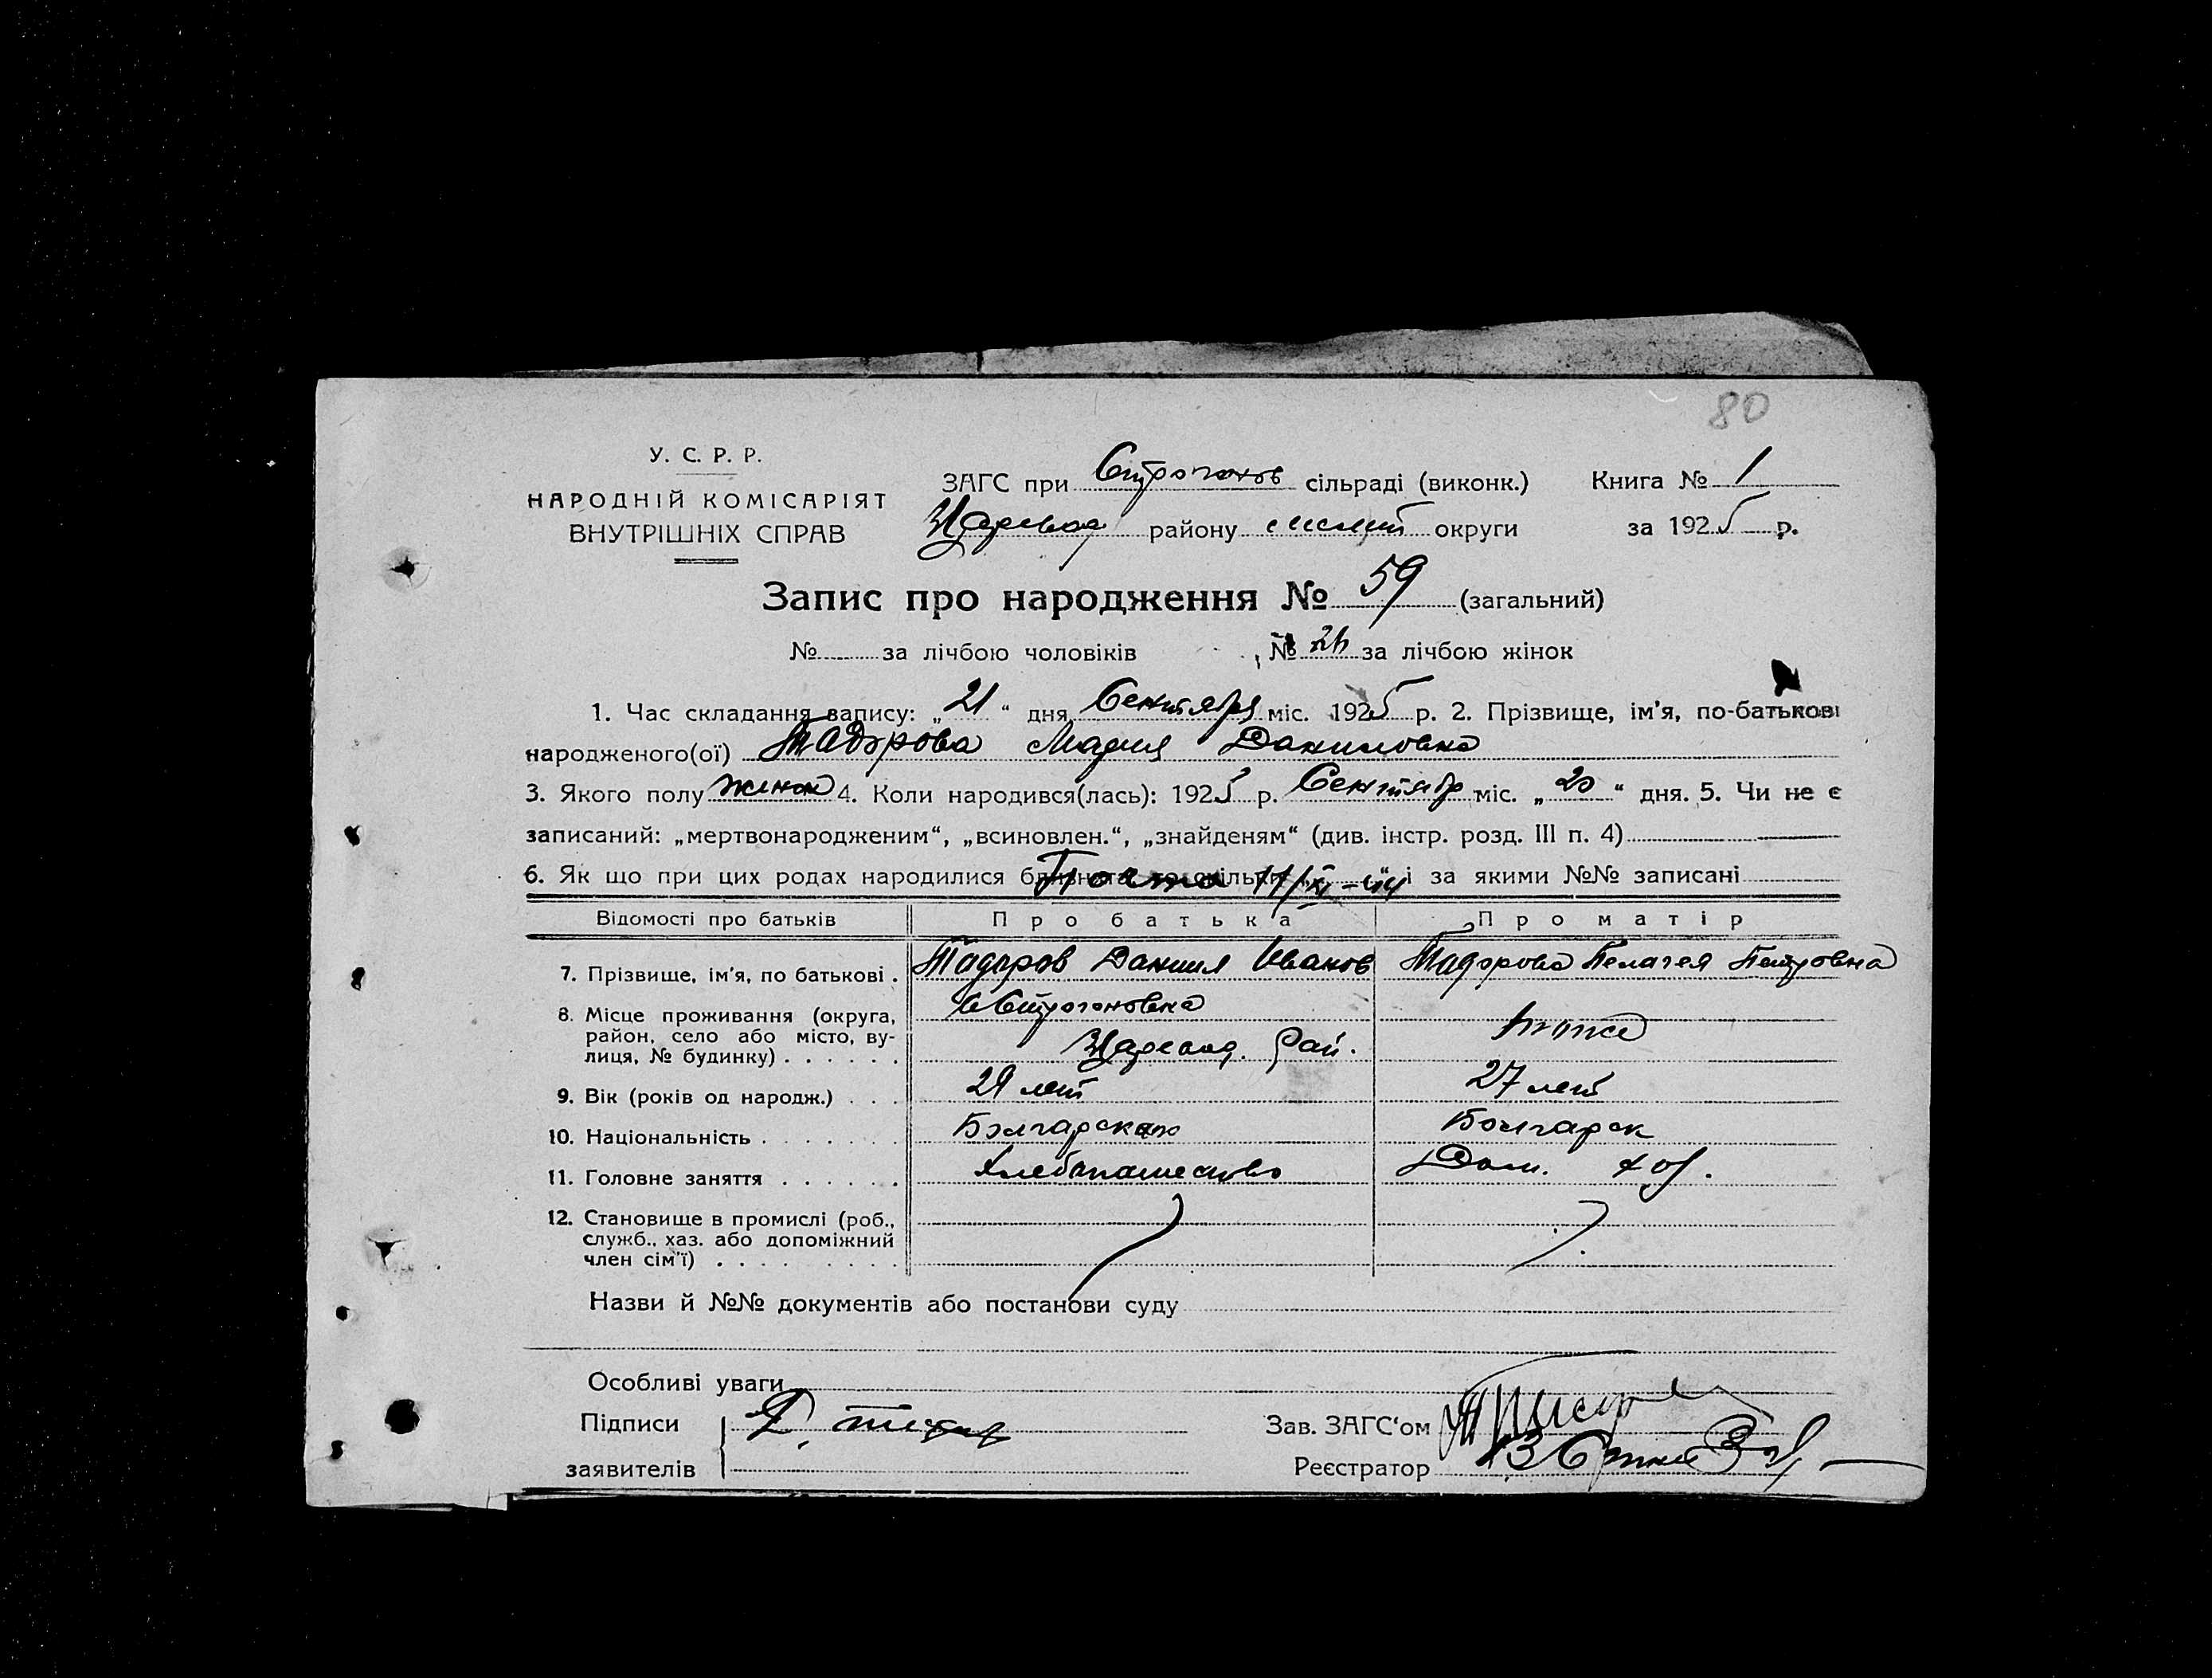 80
У. С. Р. Р.
НАРОДНІЙ КОМІСАРІЯТ
ВНУТРІШНІХ СПРАВ
ЗАГС при Строганов сільраді (виконк.) Книга № 1
району округи за 1925 р.
Запис про народження № 59 (загальний)
№ за лічбою чоловіків № за лічбою жінок
1. Час складання запису: „21“ дня Сентября міс. 1925 р. 2. Прізвище, ім'я, по-батькові
народженого(ої) Тадорова Мария Даниловна
3. Якого полу женск 4. Коли народився(лась): 1925 р. Сентябр міс. „20“ дня. 5. Чи не є
записаний: „мертвонародженим“, „всиновлен.“, „знайденям“ (див. інстр. розд. III п. 4)
6. Як що при цих родах народилися близнята, то скільки „ “ і за якими №№ записані
Відомості про батьків Про батька Про матір
7. Прізвище, ім'я, по батькові . Тадоров Даниил Иванов Тадорова Пелагея Петровна
8. Місце проживання (округа, район, село або місто, вулиця, № будинку) . . . . . . с Строгановка
Царевод. Рай. тоже
9. Вік (років од народж.) . . . 29 лет 27 лет
10. Національність . . . . . . . Болгарская Болгарск
11. Головне заняття . . . . . . Хлебопашество Дом. хоз.
12. Становище в промислі (роб., служб., хаз. або допоміжний член сім'ї) . . . . . . . . .
Назви й №№ документів або постанови суду
Особливі уваги
Підписи Зав. ЗАГС‘ом
заявителів Реєстратор